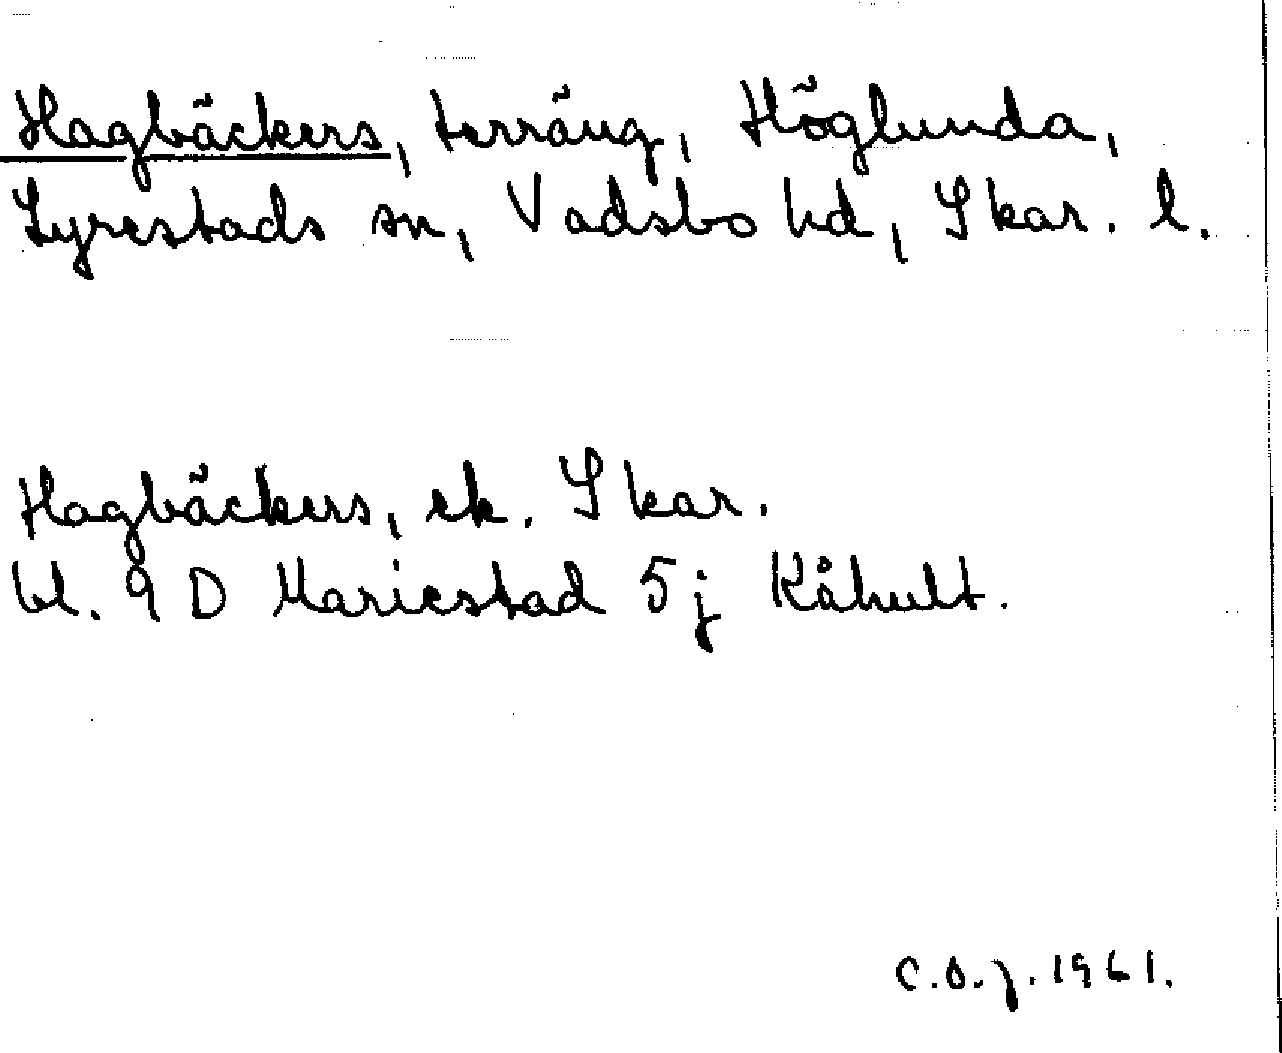 Hagbäckers, terräng, Höglunda,
Lyrestads sn, Vadsbo hd, Skar. l.
Hagbäckers, ek. Skar.
bl. 9 D Mariestad 5 j Kåhult.
C.O.J. 1961.